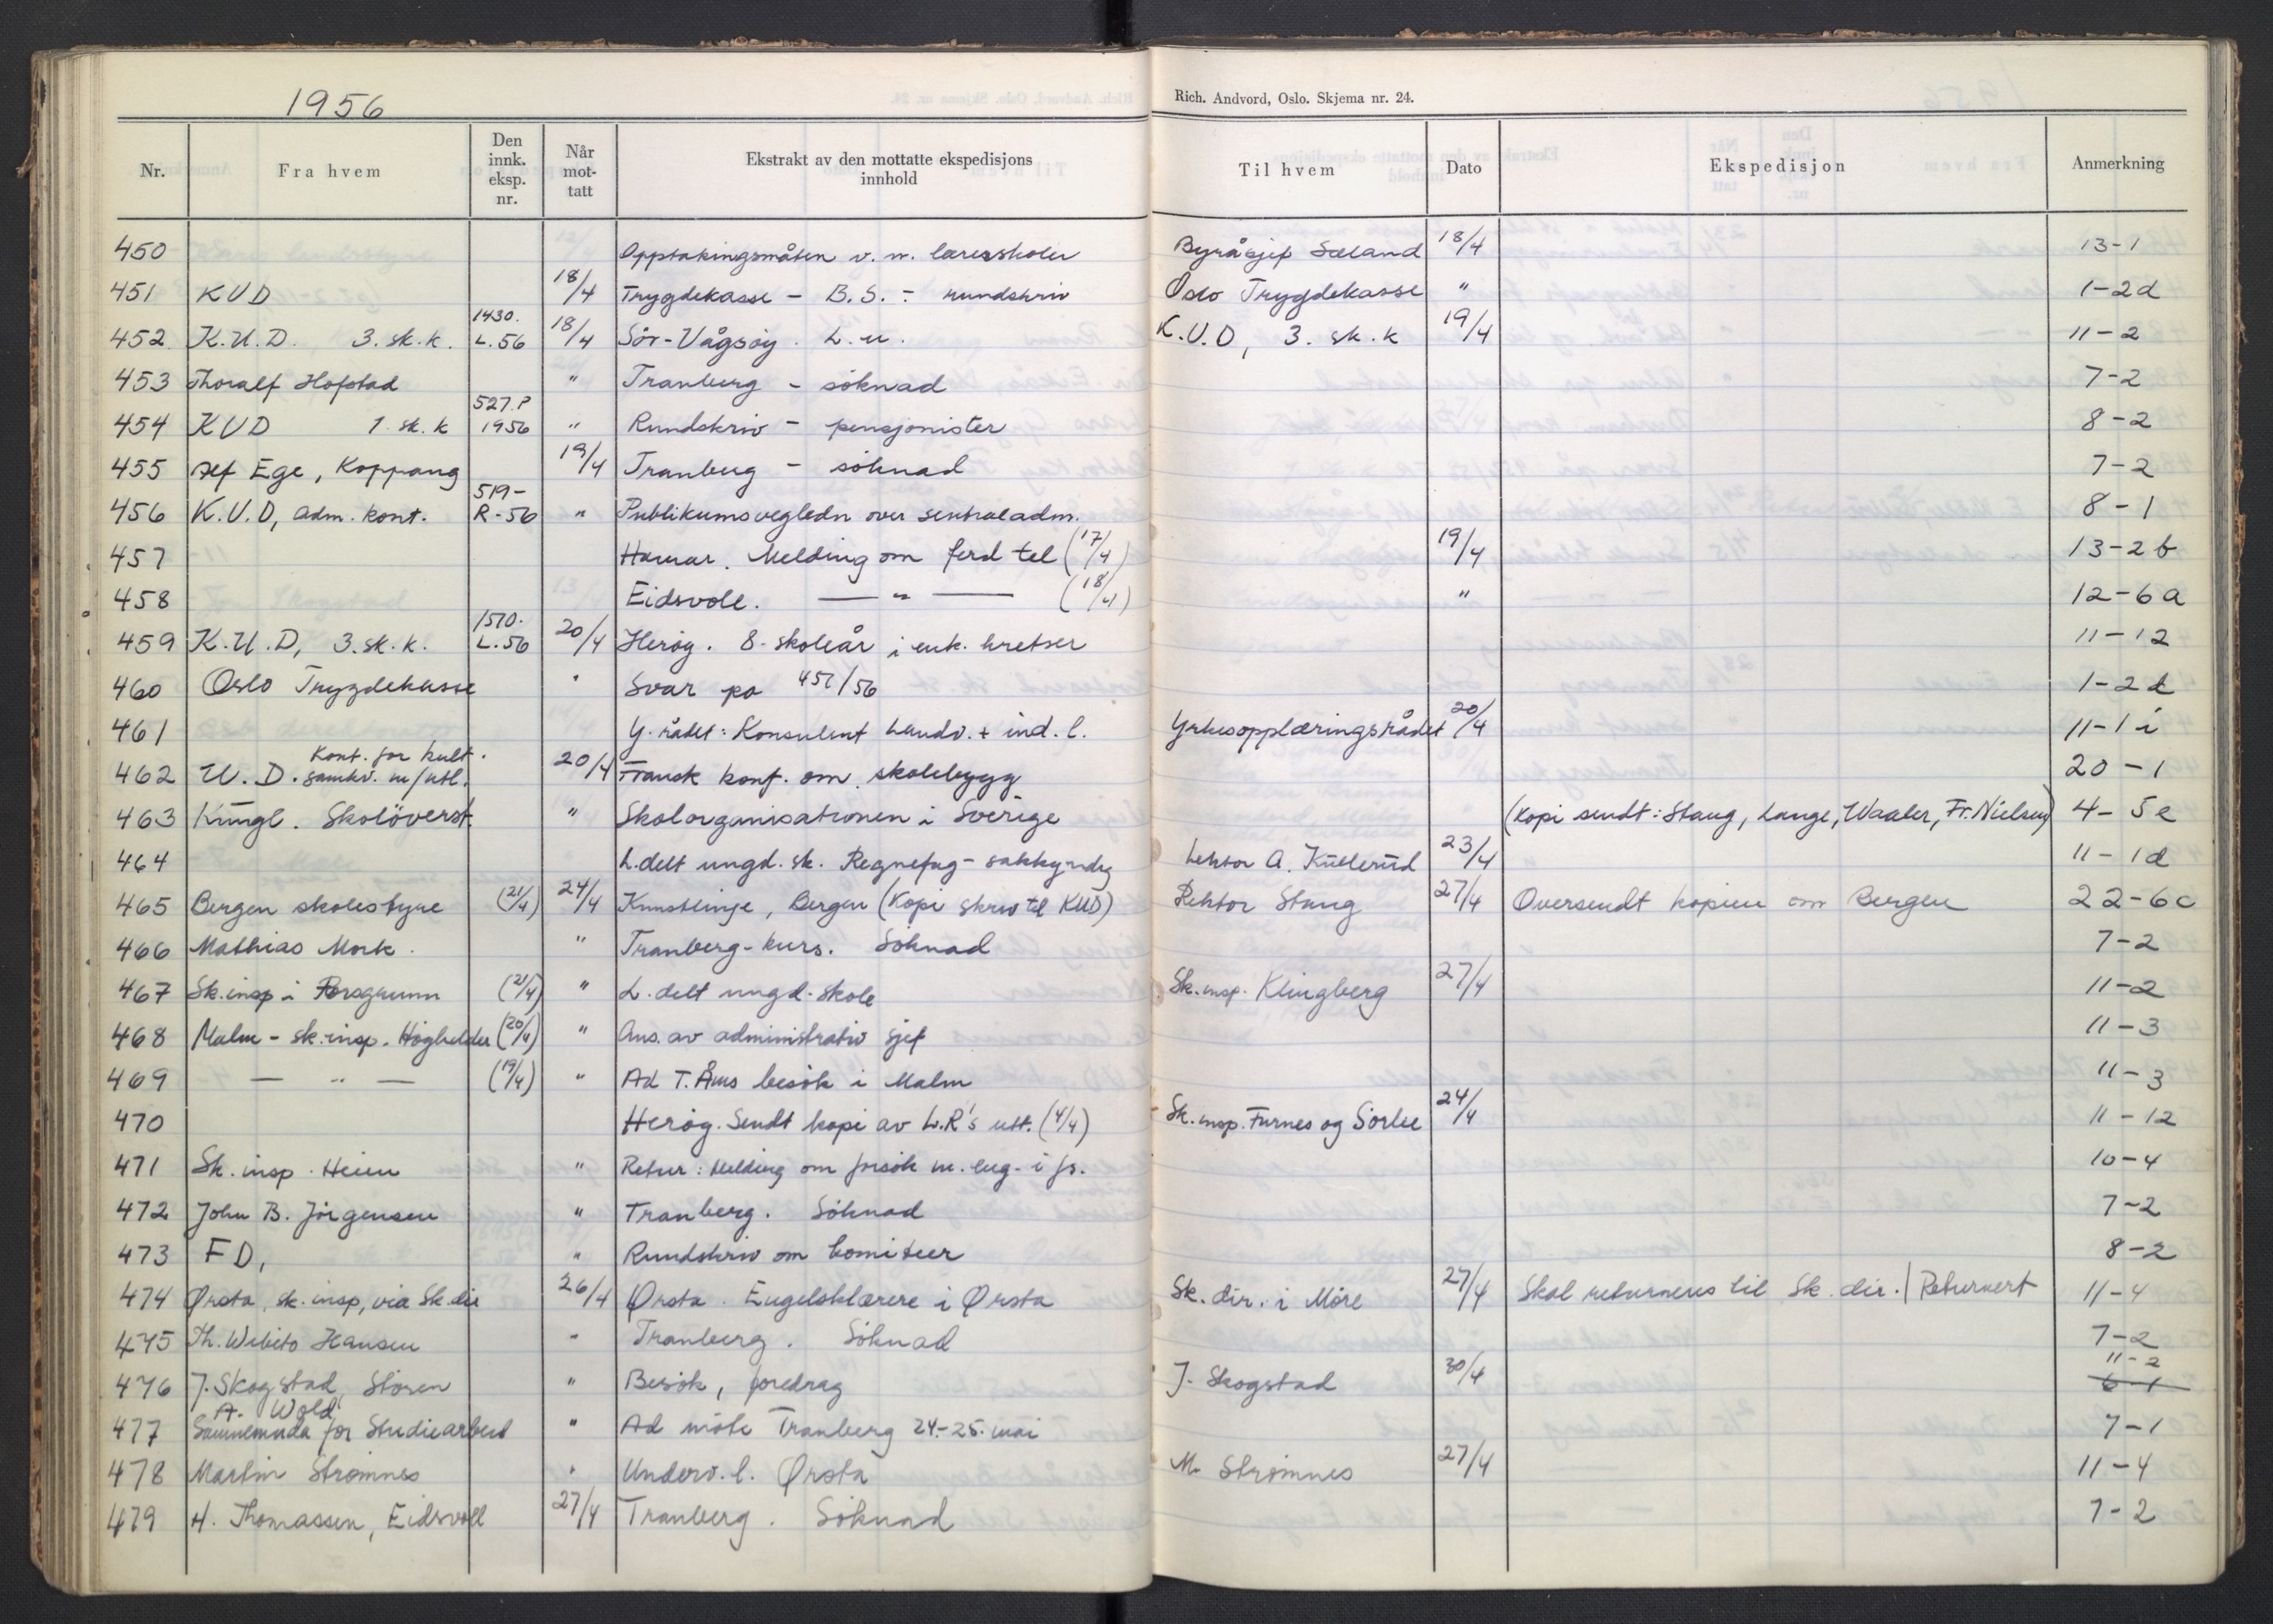 1956
Rich. Andvord, Oslo. Skjema nr. 24.
Nr. Fra hvem Den innk. eksp. nr. Når mot-tatt Ekstrakt av den mottatte ekspedisjons innhold Til hvem Dato Ekspedisjon Anmerkning
450 Opptakingsmåten v. n. lærerskoler Byråsjef Sæland 18/4 13-1
451 KUD 18/4 Trygdekasse - B.S. - rundskriv Oslo Trygdekasse " 1-2d
452 K.U.D. 3. sk. k. 1430. L. 56 18/4 Sör-Vågsöy. L. u. K.U.D, 3. sk. k 19/4 11-2
453 Thoralf Hofstad " Tranberg - söknad 7-2
454 KUD 1. sk. k 527.P 1956 " Rundskriv - pensjonister 8-2
455 Alf Ege, Koppang 19/4 Tranberg - söknad 7-2
456 K.U.D, adm. kont. 519- R-56 " Publikumsvegledn over sentraladm. 8-1
457 Hamar. Melding om ferd tel (17/4) 19/4 13-2b
458 Eidsvoll. — " — (18/4) " 12-6a
459 K.U.D, 3. sk. k. 1570. L. 56 20/4 Heröy. 8. skoleår i enk. kretser 11-12
460 Oslo Trygdekasse " Svar på 451/56 1-2d
461 Y. rådet: Konsulent handv. + ind. l. Yrkesopplæringsrådet 20/4 11-1i
462 U.D. Kont. for kult. samkv. m/utl. 20/4 Fransk konf. om skolebygg 20-1
463 Kungl. Skolöverst. " Skolorganisationen i Sverige (Kopi sendt: Stang, Lange, Waaler, Fr. Nielsen) 4-5e
464 L. delt ungd. sk. Regnefag - sakkyndig Lektor A. Kullerud 23/4 11-1d
465 Bergen skolestyre (21/4) 24/4 Kunstlinje, Bergen (Kopi skriv til KUD) Rektor Stang 27/4 Oversendt kopien om Bergen 22-6c
466 Mathias Mork. " Tranberg-kurs. Söknad 7-2
467 Sk. insp i Porsgrunn (21/4) " L. delt ungd. skole Sk. insp. Klingberg 27/4 11-2
468 Malm - sk. insp. (20/4) " Ans. av administrativ sjef 11-3
469 — " — (19/4) " Ad T. Åms besök i Malm 11-3
470 Heröy. Sendt kopi av L.R's utt. (4/4) Sk. insp. Furnes og Sörlie 24/4 11-12
471 Sk. insp. Heien " Retur: Melding om forsök m. eng. i fs. 10-4
472 John B. Jörgensen " Tranberg. Söknad 7-2
473 FD, " Rundskriv om komiteer 8-2
474 Ørsta, sk. insp, via Sk. dir 26/4 Ørsta. Engelsklærere i Ørsta Sk. dir. i Möre 27/4 Skal returneres til Sk. dir. / Returnert 11-4
475 Th. Hansen " Tranberg. Söknad 7-2
476 J. Skogstad, Stören " Besök, foredrag J. Skogstad 30/4 11-2 6-1
477 A. Wold, Samnemnda for Studiearbeid " Ad möte Tranberg 24.-25. mai 7-1
478 Martin Strömnes " Underv. l. Ørsta M. Strömnes 27/4 11-4
479 H. Thomassen, Eidsvoll 27/4 Tranberg. Söknad 7-2